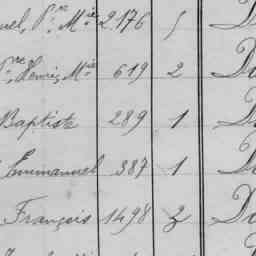 uel, Pre Mie 2176 5 D
Pre Henri, Mie 619 2 D
Baptiste 289 1 D
Emmanuel 387 1 Do
François 1498 3 Do